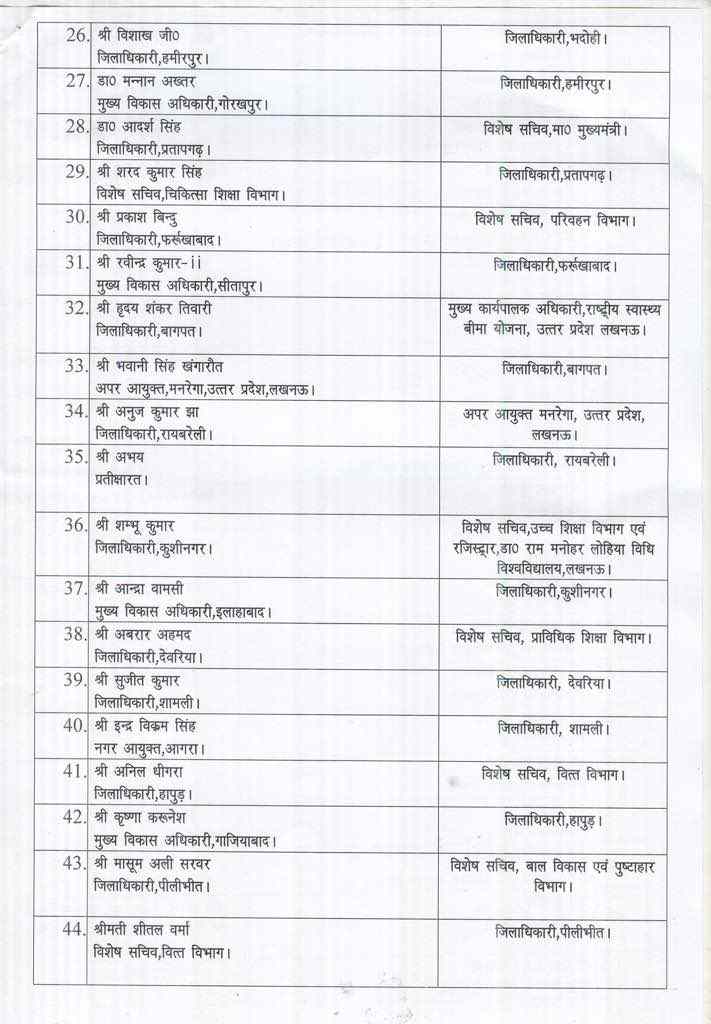 26. श्री विशाख जी0
जिलाधिकारी,हमीरपुर।
जिलाधिकारी,भदोही।
27. डा0 मन्नान अख्तर
मुख्य विकास अधिकारी,गोरखपुर।
जिलाधिकारी,हमीरपुर।
28. डा0 आदर्श सिंह
जिलाधिकारी,प्रतापगढ़।
विशेष सचिव,मा0 मुख्यमंत्री।
29. श्री शरद कुमार सिंह
विशेष सचिव,चिकित्सा शिक्षा विभाग।
जिलाधिकारी,प्रतापगढ़।
30. श्री प्रकाश बिन्दु
जिलाधिकारी,फर्रूखाबाद।
विशेष सचिव, परिवहन विभाग।
31. श्री रवीन्द्र कुमार-ii
मुख्य विकास अधिकारी,सीतापुर।
जिलाधिकारी,फर्रूखाबाद।
32. श्री हृदय शंकर तिवारी
जिलाधिकारी,बागपत।
मुख्य कार्यपालक अधिकारी,राष्ट्रीय स्वास्थ्य
बीमा योजना, उत्तर प्रदेश लखनऊ।
33. श्री भवानी सिंह खंगारौत
अपर आयुक्त,मनरेगा,उत्तर प्रदेश,लखनऊ।
जिलाधिकारी,बागपत।
34. श्री अनुज कुमार झा
जिलाधिकारी,रायबरेली।
अपर आयुक्त मनरेगा, उत्तर प्रदेश,
लखनऊ।
35. श्री अभय
प्रतीक्षारत।
जिलाधिकारी, रायबरेली।
36. श्री शम्भू कुमार
जिलाधिकारी,कुशीनगर।
विशेष सचिव,उच्च शिक्षा विभाग एवं
रजिस्ट्रार,डा0 राम मनोहर लोहिया विधि
विश्वविद्यालय,लखनऊ।
37. श्री आन्द्रा वामसी
मुख्य विकास अधिकारी,इलाहाबाद।
जिलाधिकारी,कुशीनगर।
38. श्री अबरार अहमद
जिलाधिकारी,देवरिया।
विशेष सचिव, प्राविधिक शिक्षा विभाग।
39. श्री सुजीत कुमार
जिलाधिकारी,शामली।
जिलाधिकारी, देवरिया।
40. श्री इन्द्र विक्रम सिंह
नगर आयुक्त,आगरा।
जिलाधिकारी, शामली।
41. श्री अनिल धीगरा
जिलाधिकारी,हापुड़।
विशेष सचिव, वित्त विभाग।
42. श्री कृष्णा करूनेश
मुख्य विकास अधिकारी,गाजियाबाद।
जिलाधिकारी,हापुड़।
43. श्री मासूम अली सरवर
जिलाधिकारी,पीलीभीत।
विशेष सचिव, बाल विकास एवं पुष्टाहार
विभाग।
44. श्रीमती शीतल वर्मा
विशेष सचिव,वित्त विभाग।
जिलाधिकारी,पीलीभीत।